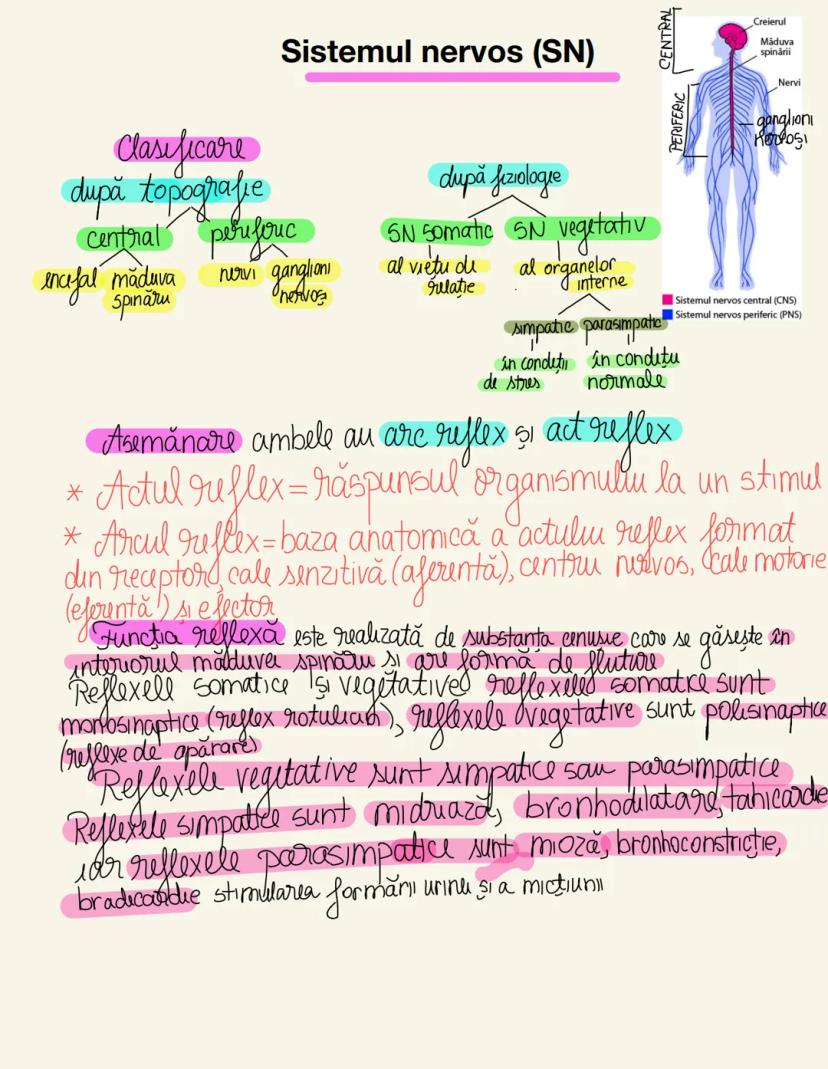 Sistemul nervos (SN)
CENTRAL
PERIFERIC
Creierul
Măduva
spinării
Nervi
ganglioni
nervoși
Clasificare
după topografie
central periferic
encefal măduva spinării nervi ganglioni nervoși
după fiziologie
SN somatic SN vegetativ
al vieții de relație al organelor interne
simpatic parasimpatic
în condiții de stres în condiții normale
Sistemul nervos central (CNS)
Sistemul nervos periferic (PNS)
Asemănare ambele au arc reflex și act reflex
* Actul reflex = răspunsul organismului la un stimul
* Arcul reflex = baza anatomică a actului reflex format
din receptor, cale senzitivă (aferentă), centru nervos, cale motorie
(eferentă) și efector
Funcția reflexă este realizată de substanța cenușie care se găsește în
interiorul măduvei spinării și are formă de fluture
Reflexele somatice și vegetative reflexele somatice sunt
monosinaptice (reflex rotulian), reflexele vegetative sunt polisinaptice
(reflexe de apărare)
Reflexele vegetative sunt simpatice sau parasimpatice
Reflexele simpatice sunt midriază, bronhodilatare, tahicardie
iar reflexele parasimpatice sunt mioză, bronhoconstricție,
bradicardie stimularea formării urinii și a micțiunii